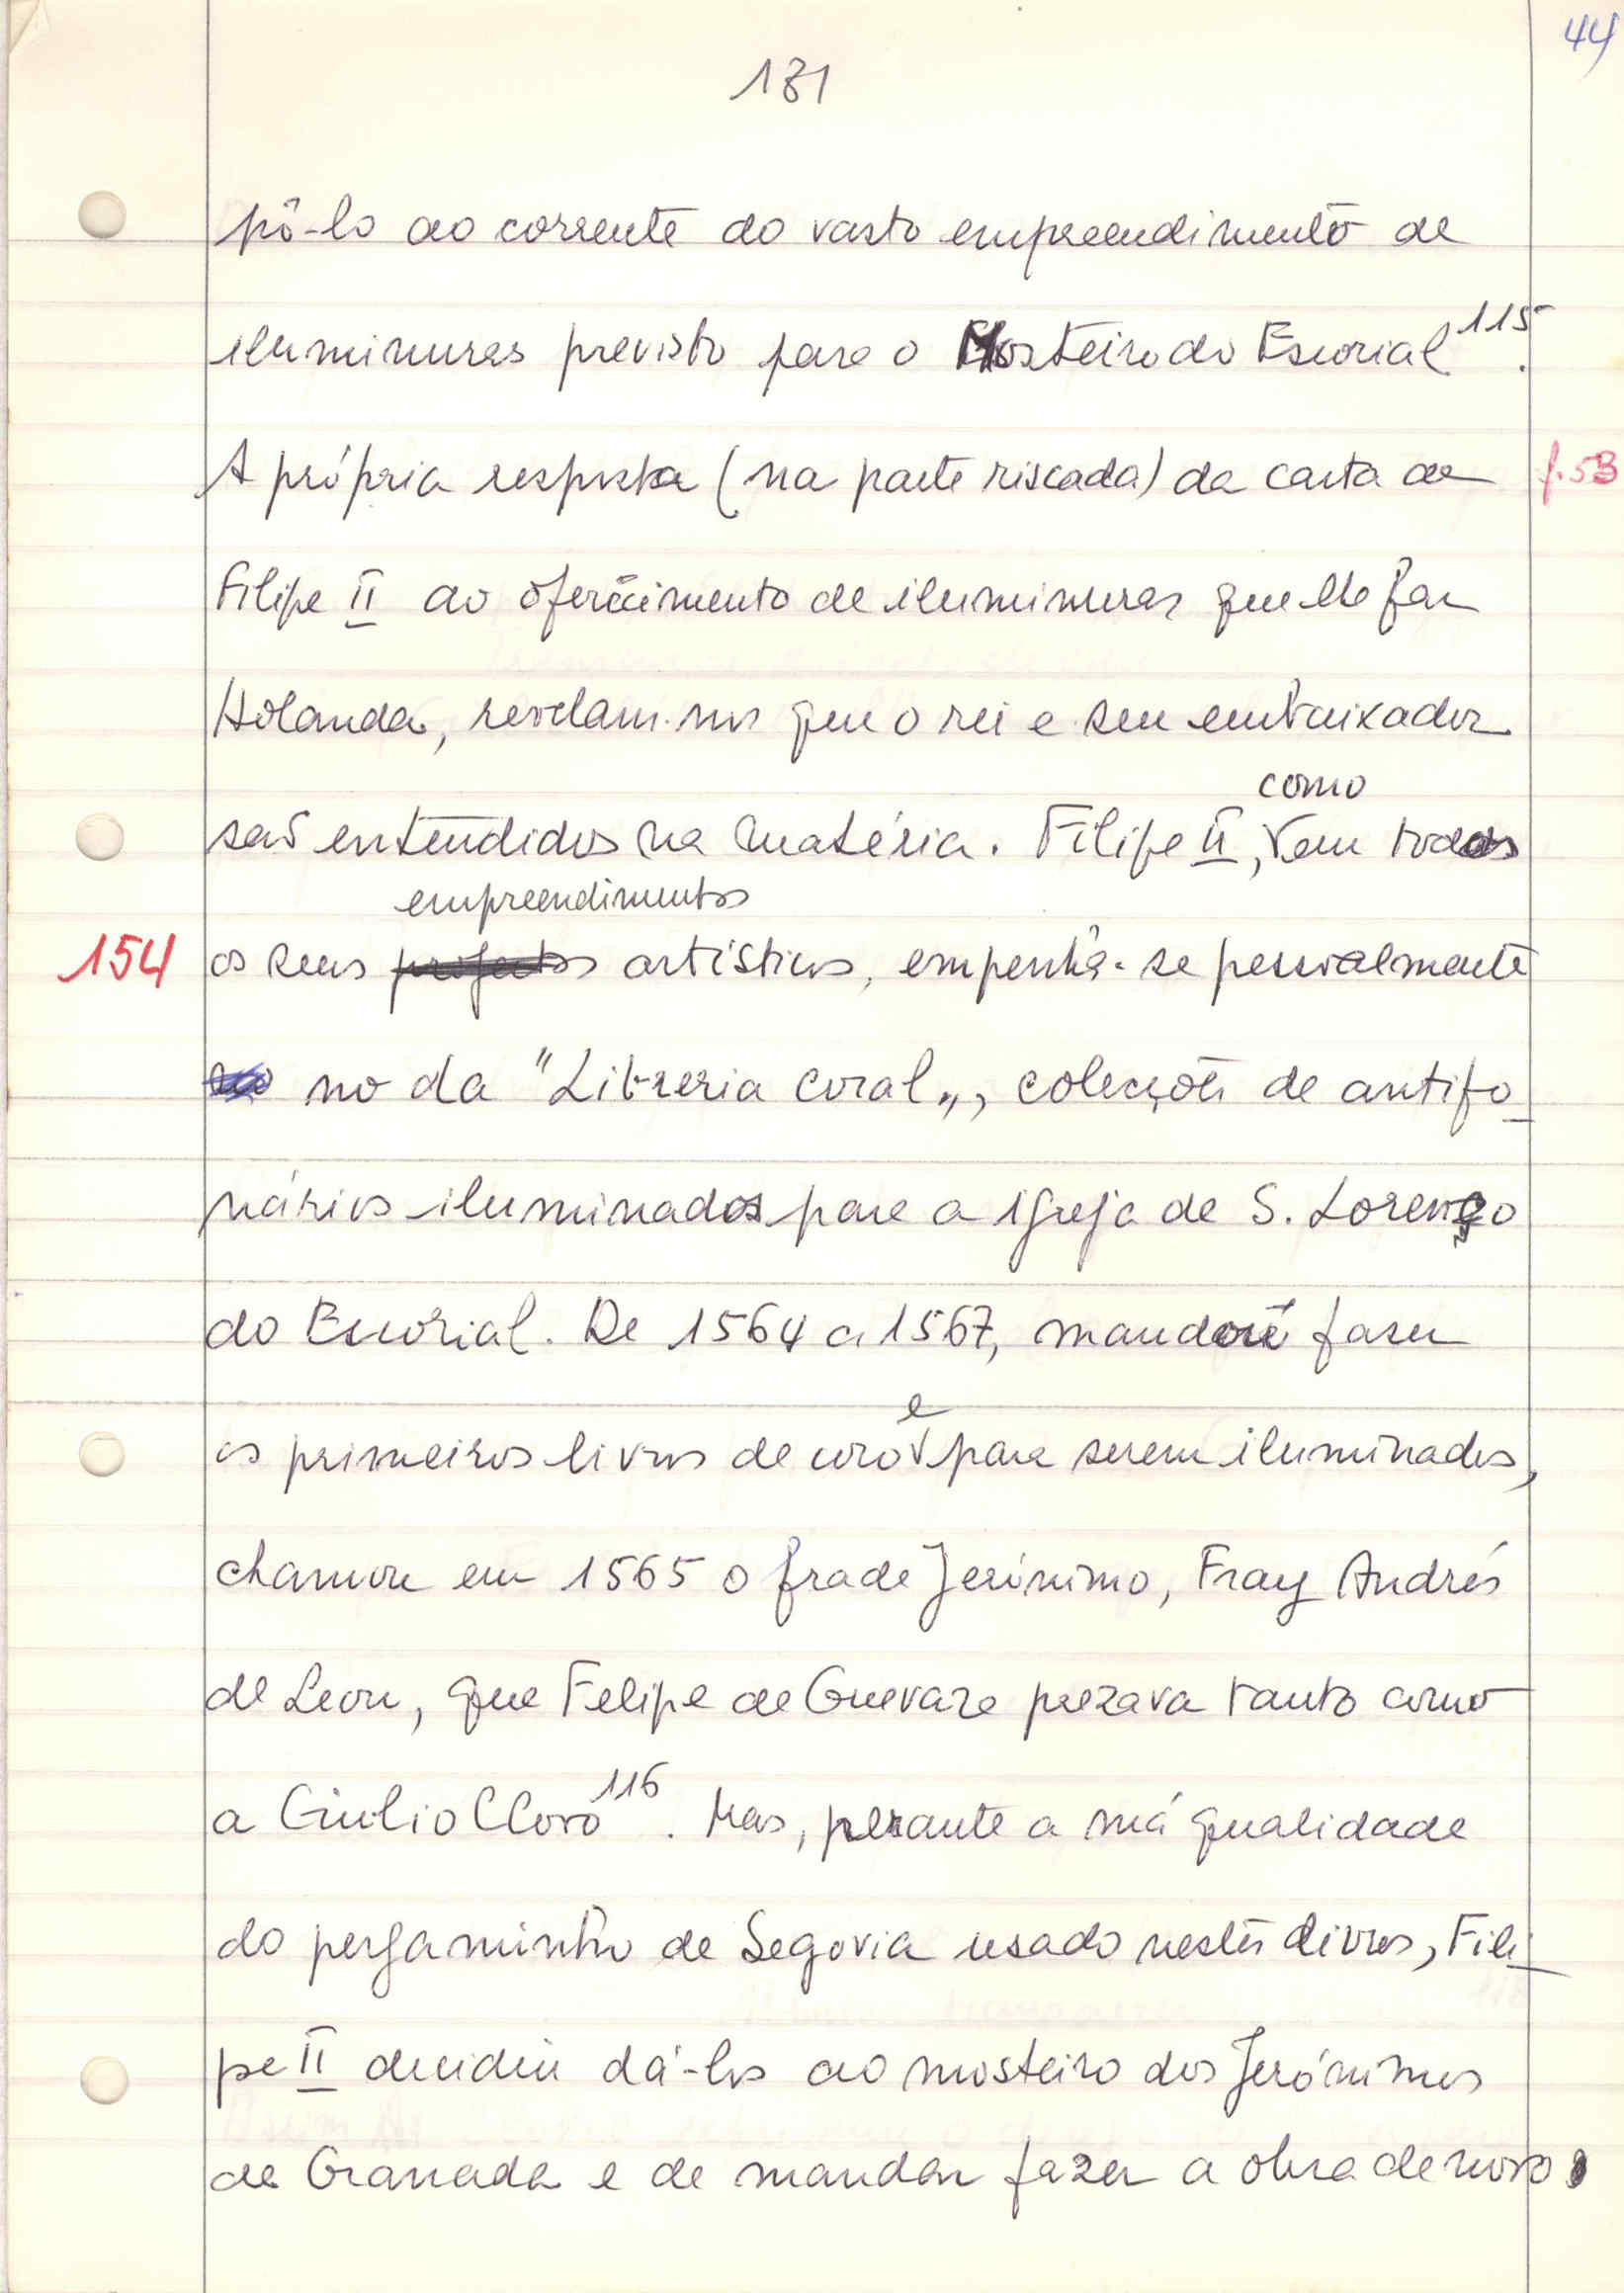 44
181
pô-lo ao corrente do vasto empreendimento de
iluminuras previsto para o Mosteiro do Escorial 115.
A própria resposta (na parte riscada) da carta de
f. 53
Filipe II ao oferecimento de iluminuras que lhe faz
Holanda, revelam-nos que o rei e seu embaixador
são entendidos na matéria. Filipe II, como em todos
154
os seus projectos empreendimentos artísticos, empenhá-se pessoalmente
no da "Libreria coral", colecções de antifo-
nários iluminados para a igreja de S. Lorenço
do Escorial. De 1564 a 1567, mandou fazer
os primeiros livros de coro e para serem iluminados,
chamou em 1565 o frade Jerónimo, Fray Andrés
de Leon, que Felipe de Guevara prezava tanto como
a Giulio Clovo 116. Mas, perante a má qualidade
do pergaminho de Segovia usado nestes livros, Fili-
pe II decidiu dá-los ao mosteiro dos Jerónimos
de Granada e de mandar fazer a obra de novo,